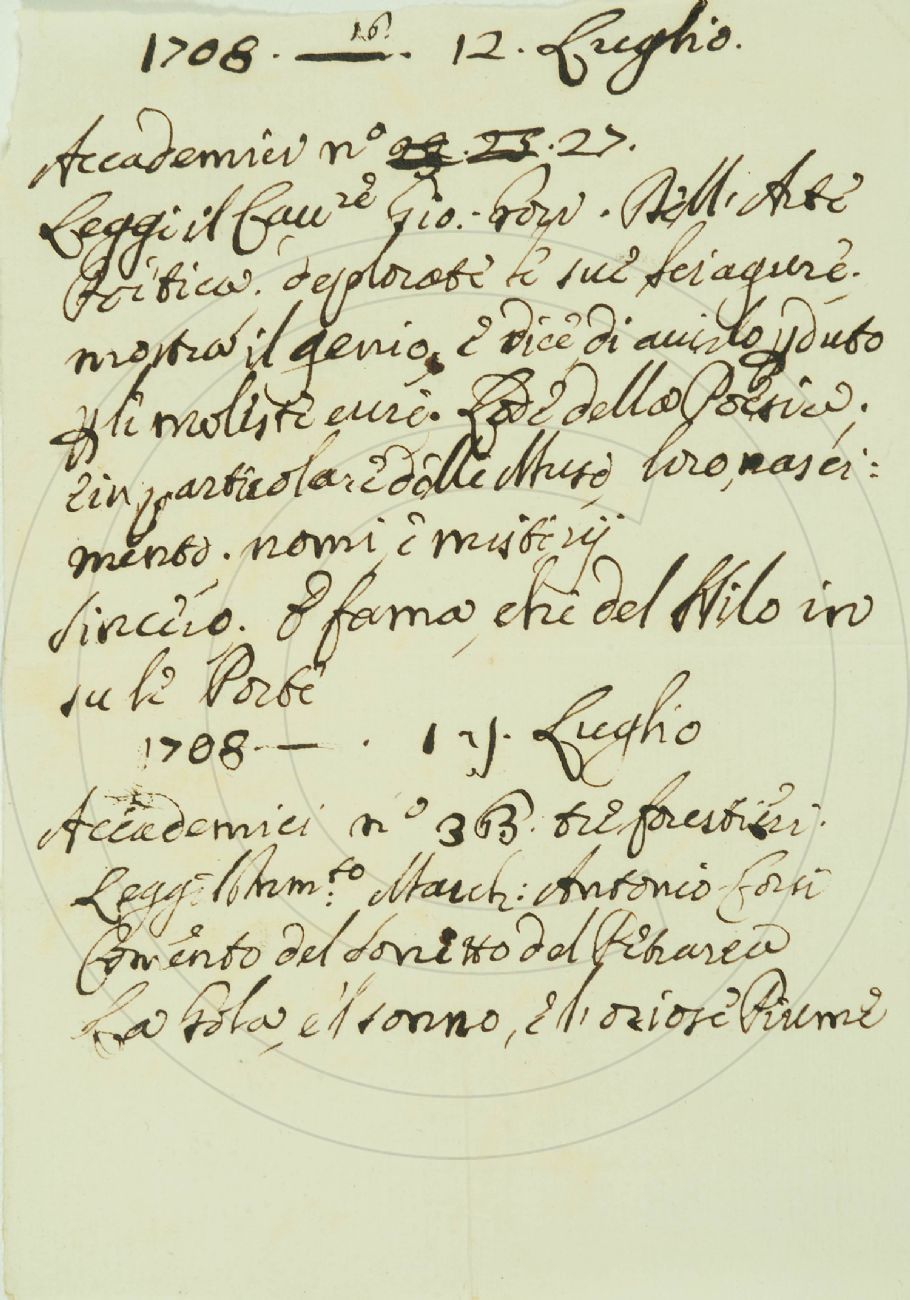 1708. — 16. 12. Luglio.
Accademici n° 27.
Leggi il Cau.re Gio: Dell'Arte
Poetica. deplorate le sue sciagure.
mostra il genio, e dice di auerlo pduto
p le moleste cure. Lode della Poesia.
e in particolare delle Muse, loro nasci:
mento. nomi, e misterij
Sincero. È fama, che del Nilo in
su le Porte
1708 — . Luglio
Accademici n° 36. tre forestieri.
Legge March: Antonio Corsi
Comento del Sonetto del Petrarca
La Gola, e'l sonno, e l'oziose Piume